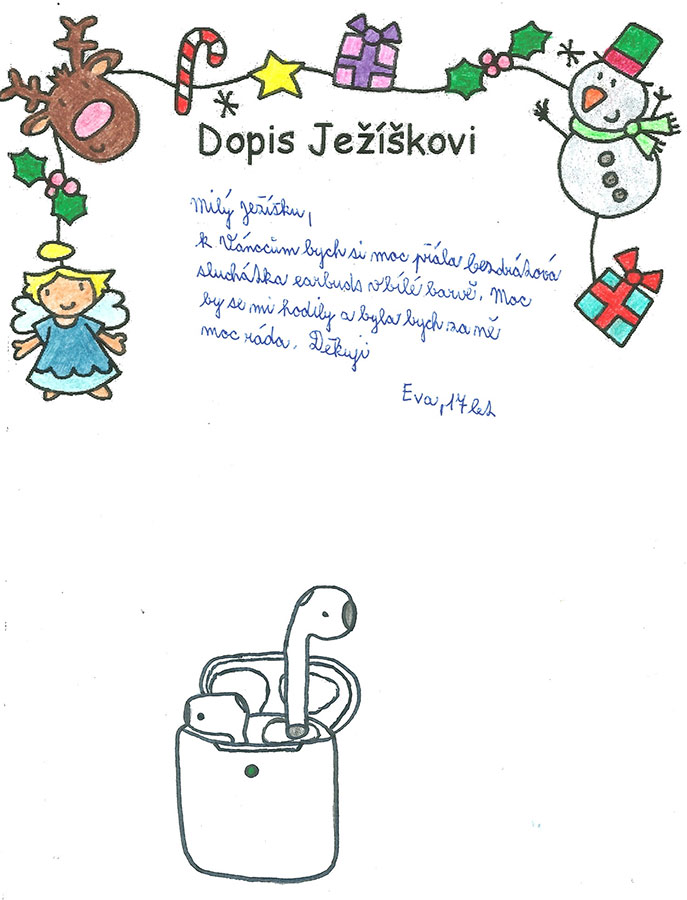 Dopis Ježíškovi
Milý Ježíšku,
k Vánocům bych si moc přála bezdrátová
sluchátka earbuds v bílé barvě. Moc
by se mi hodily a byla bych za ně
moc ráda. Děkuji
Eva, 17 let